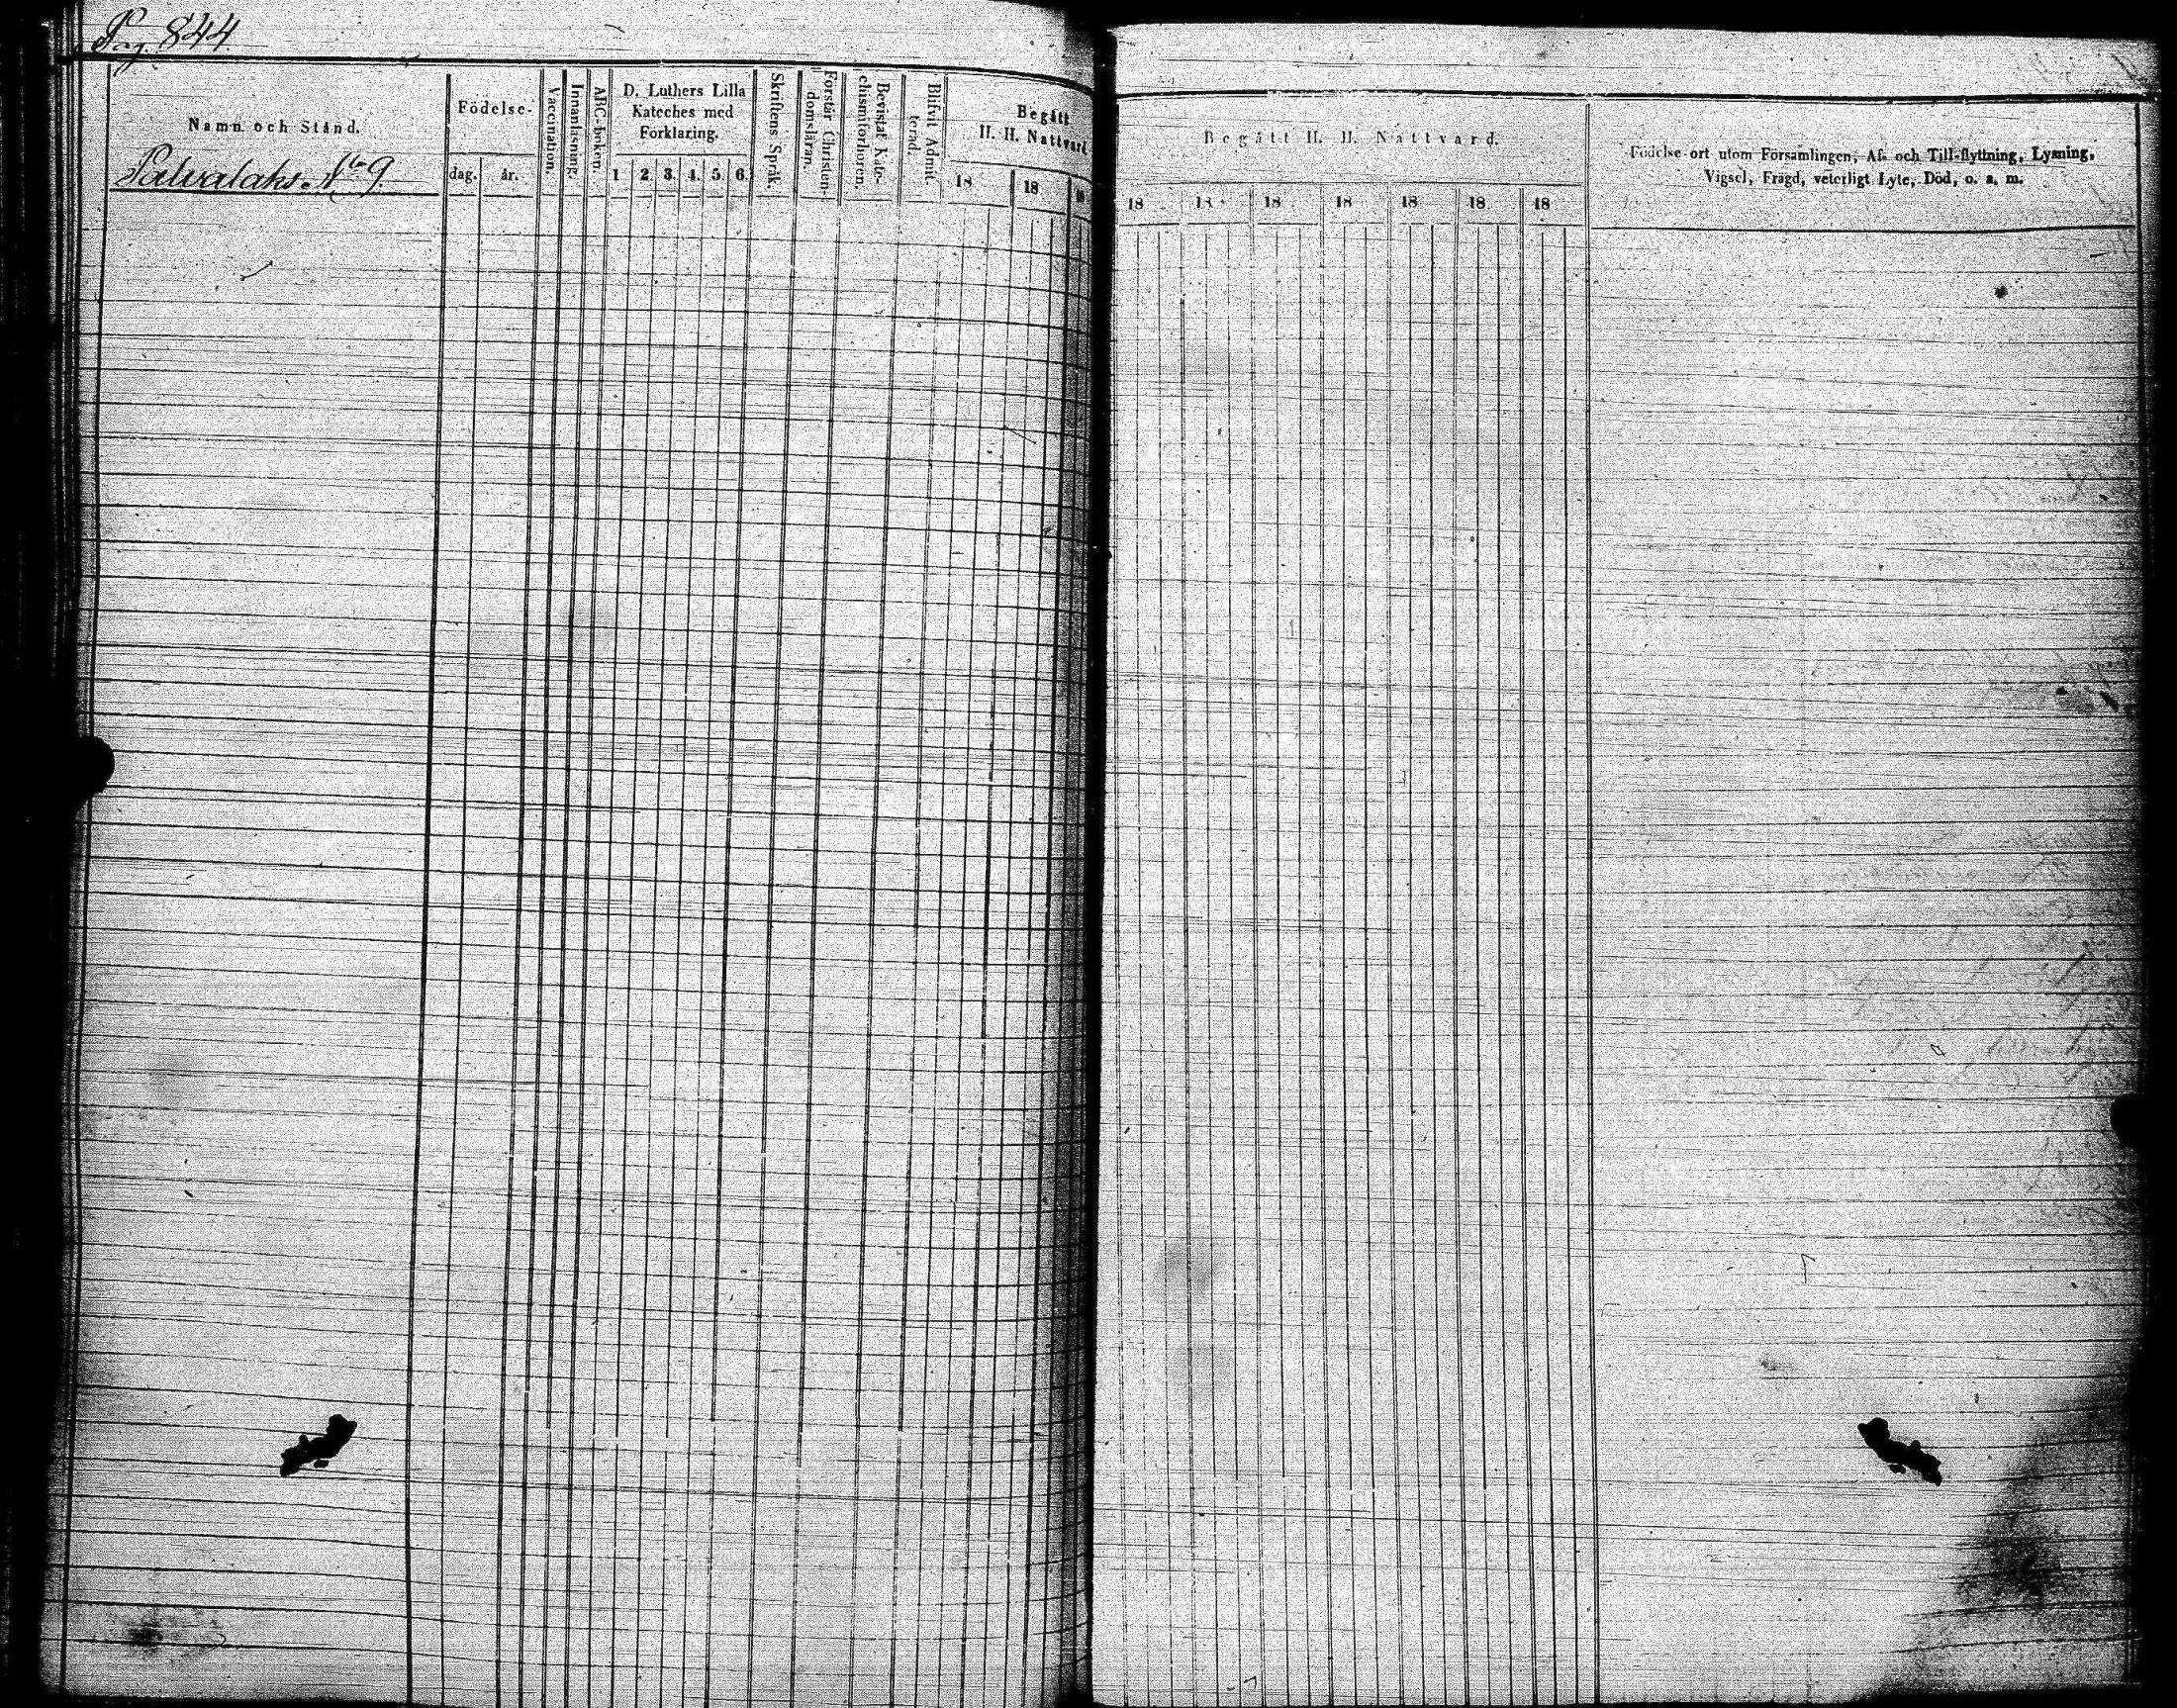 Pag. 844
Namn och Stånd.
Palvalaks. No 9.
Födelse-
dag.
år.
Vaccination.
Innanläsning.
ABC-boken.
D. Luthers Lilla
Kateches med
Förklaring.
1 2. 3. 4. 5. 6.
Skriftens Språk.
Förstår Christen-
domsläran.
Bevistat Kate-
chismiförhören.
Blifvit Admit-
terad.
Begått
H. H. Nattvard
18 18 18
Begått H. H. Nattvard.
18 18 18 18 18 18 18
Födelse-ort utom Församlingen, Af- och Till-flyttning, Lysning,
Vigsel, Frägd, veterligt Lyte, Död, o. a. m.